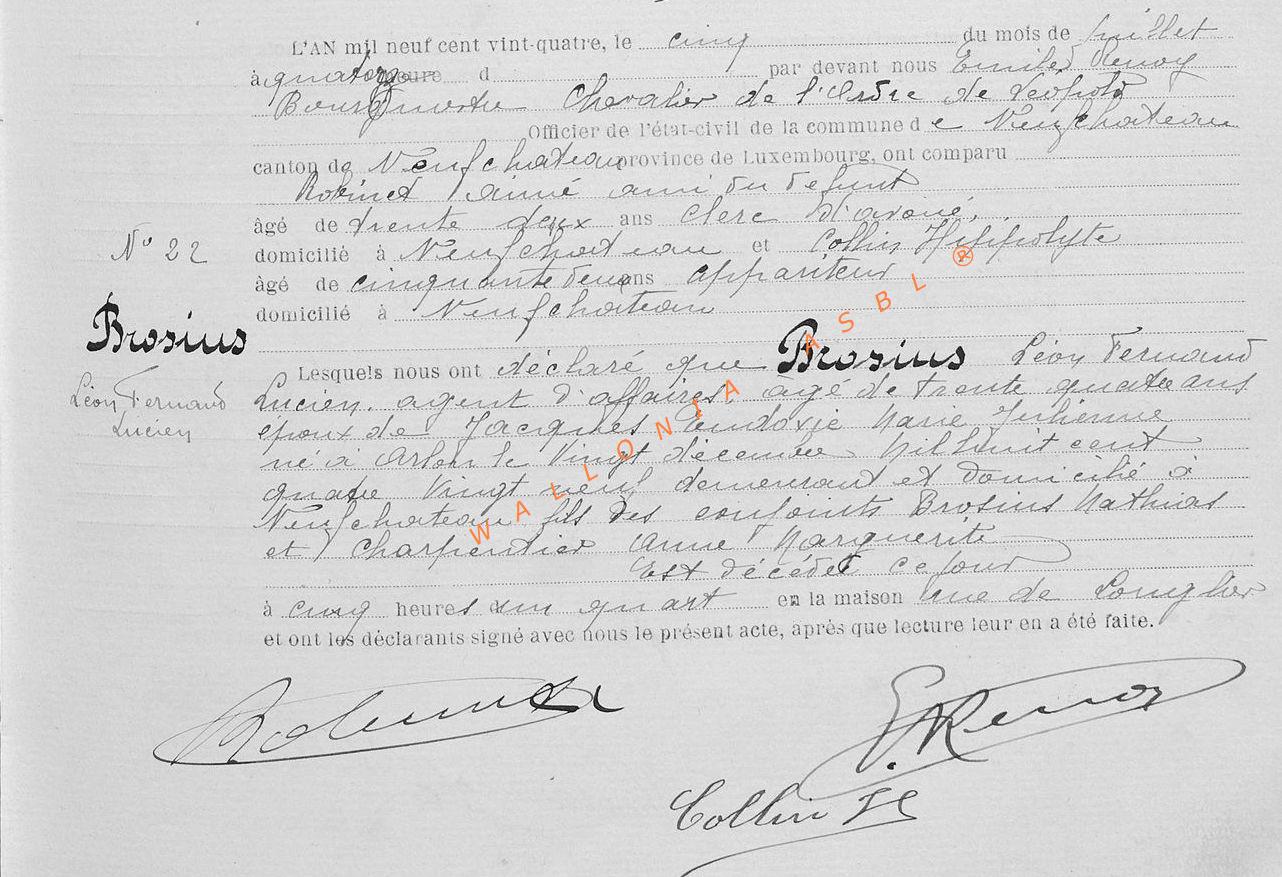 L'AN mil neuf cent vint-quatre, le cinq du mois de juillet
à quatorze heure d par devant nous Emile Renoy
Bourgmestre Chevalier de l'Ordre de Léopold
Officier de l'état-civil de la commune de Neufchateau
canton de Neufchateau province de Luxembourg, ont comparu
Robinet Aimé ami du défunt
âgé de trente deux ans clerc d'avoué,
domicilié à Neufchateau et Collin Hippolyte
âgé de cinquante deux ans appariteur
domicilié à Neufchateau
N° 22
Brosius
Léon Fernand
Lucien
Lesquels nous ont déclaré que Brosius Léon Fernand
Lucien, agent d'affaires, âgé de trente quatre ans
époux de Jacques Eudoxie Marie Julienne
né à Arlon le vingt décembre mil huit cent
quatre vingt neuf demeurant et domicilié à
Neufchateau fils des conjoints Brosius Mathias
et Charpentier Anne Marguerite
Est décédé ce jour
à cinq heures un quart en la maison rue de Longlier
et ont les déclarants signé avec nous le présent acte, après que lecture leur en a été faite.
Robinet
E. Renoy
Collin H
WALLONIA ASBL ®